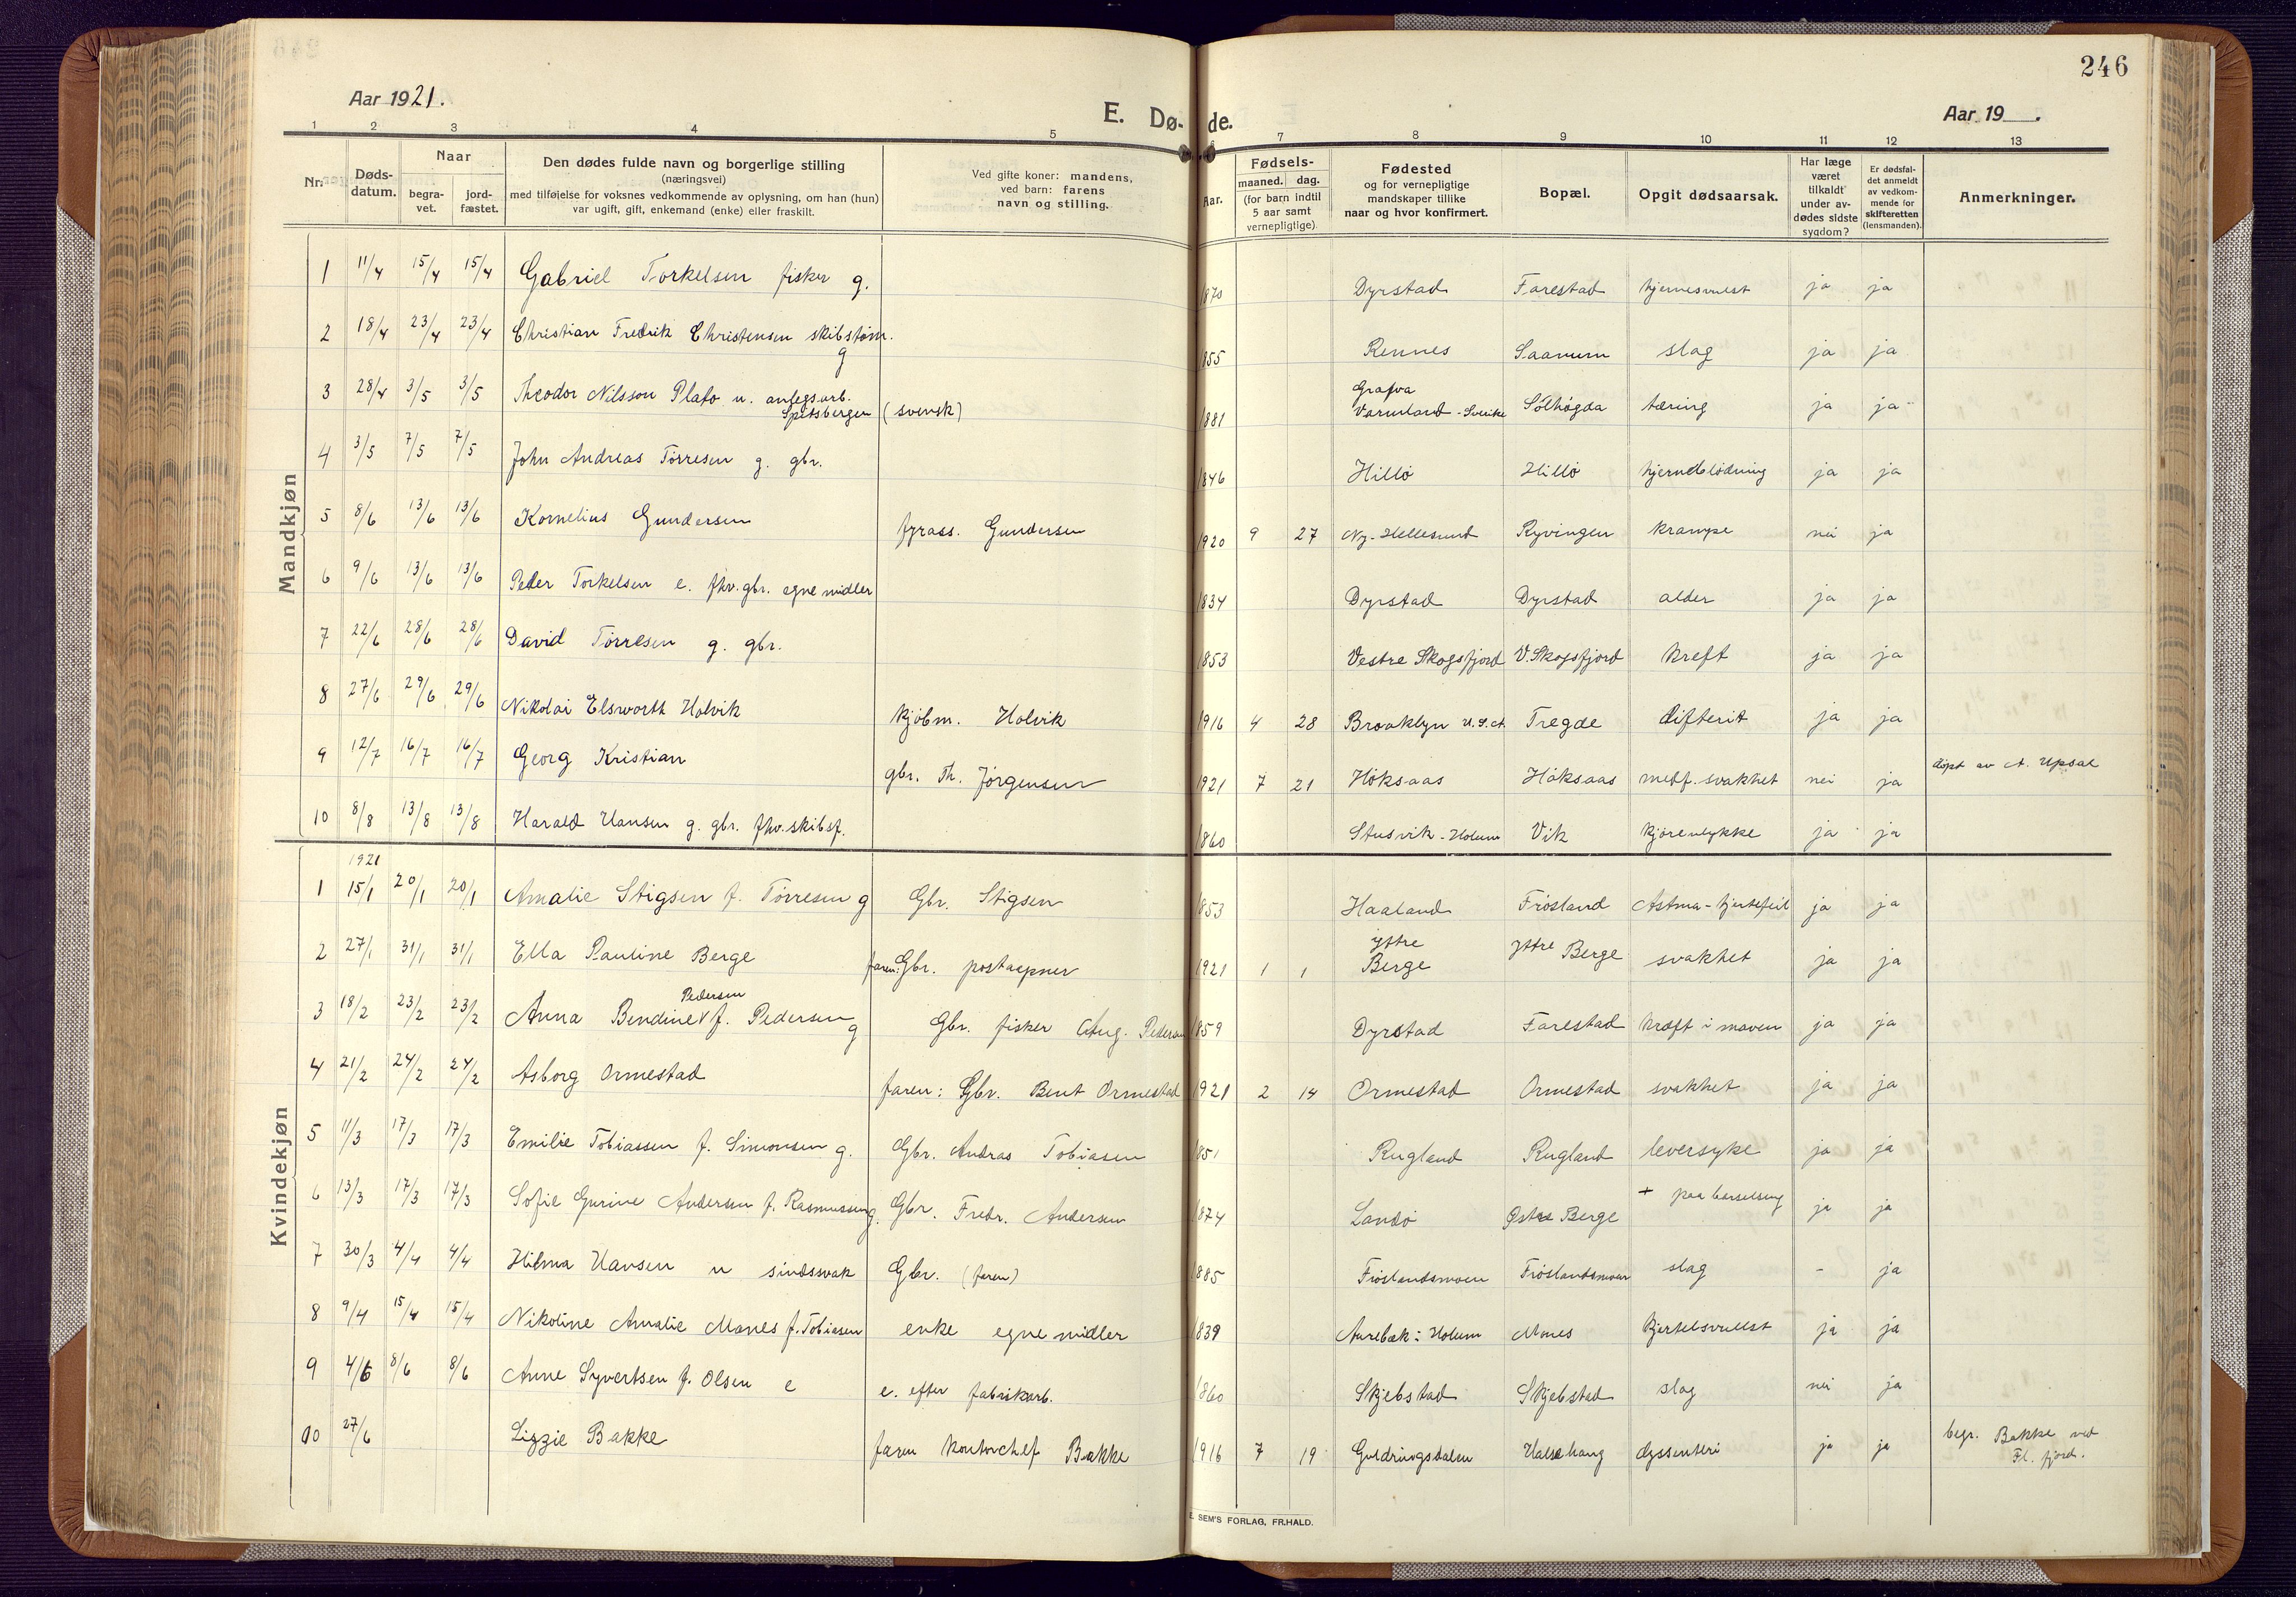 246
Aar 1921.
E. Dø- de.
Aar 19 .
1 2 3 4 5 6 7 8 9 10 11 12 13
Nr.
Døds-
datum.
Naar
begra-
vet.
jord-
fæstet.
Den dødes fulde navn og borgerlige stilling
(næringsvei)
med tilføielse for voksnes vedkommende av oplysning, om han (hun)
var ugift, gift, enkemand (enke) eller fraskilt.
Ved gifte koner: mandens,
ved barn: farens
navn og stilling.
Aar.
Fødsels-
maaned. dag.
(for barn indtil
5 aar samt
vernepligtige).
Fødested
og for vernepligtige
mandskaper tillike
naar og hvor konfirmert.
Bopæl.
Opgit dødsaarsak.
Har læge
været
tilkaldt
under av-
dødes sidste
sygdom?
Er dødsfal-
det anmeldt
av vedkom-
mende for
skifteretten
(lensmanden).
Anmerkninger.
Mandkjøn
1 11/4 15/4 15/4 Gabriel Torkelsen fisker g. 1870 Dyrstad Farestad hjernesvulst ja ja
2 18/4 23/4 23/4 Christian Fredrik Christensen skibstøm. 1855 Rennes Saanum slag ja ja
g
3 28/4 3/5 3/5 Theodor Nilsson Plato u. anlegsarb.
Spitsbergen (svensk) 1881 Grafva
Varmland - Sverike Sölhögda tæring ja ja
4 3/5 7/5 7/5 John Andreas Tørresen g. gbr. 1846 Hillö Hillö hjerneblödning ja ja
5 8/6 13/6 13/6 Kornelius Gundersen fyrass. Gundersen 1920 9 27 Ny-Hellesund Ryvingen krampe nei ja
6 9/6 13/6 13/6 Peder Torkelsen e. fhv. gbr. egne midler 1834 Dyrstad Dyrstad alder ja ja
7 22/6 28/6 28/6 David Tørresen g. gbr. 1853 Vestre Skogsfjord V. Skogsfjord kreft ja ja
8 27/6 29/6 29/6 Nikolai Elsworth Holvik kjöbm. Holvik 1916 4 28 Brooklyn U.S.A Tregde difterit ja ja
9 12/7 16/7 16/7 Georg Kristian gbr. Th. Jörgensen 1921 7 21 Höksaas Höksaas medf. svakhet nei ja döpt av A. Upsal
10 8/8 13/8 13/8 Harald Hansen g. gbr. fhv. skibsf. 1860 Stusvik - Holum Vik kjöreulykke ja ja
Kvindekjøn
1921
1 15/1 20/1 20/1 Amalie Stigsen f. Tørresen g Gbr. Stigsen 1853 Haaland Frösland Astma - hjertefeil ja ja
2 27/1 31/1 31/1 Ella Pauline Berge faren: Gbr. postaapner 1921 1 1 Ytre
Berge Ytre Berge svakhet ja ja
Pedersen
3 18/2 23/2 23/2 Anna Bendine f. Pedersen g Gbr. fisker Aug. Pedersen 1859 Dyrstad Farestad kræft i maven ja ja
4 21/2 24/2 24/2 Asborg Ormestad faren: Gbr. Bent Ormestad 1921 2 14 Ormestad Ormestad svakhet ja ja
5 11/3 17/3 17/3 Emilie Tobiassen f. Simonsen g. Gbr. Andras Tobiasen 1851 Rugland Rugland leversyke ja ja
6 13/3 17/3 17/3 Sofie Gurine Andersen f. Rasmussen g. Gbr. Fredr. Andersen 1874 Landö Østre Berge + paa barselseng ja ja
7 30/3 4/4 4/4 Hilma Hansen u sindssvak Gbr. (faren) 1885 Fröslandsmoen Fröslandsmoen slag - ja
8 9/4 15/4 15/4 Nikoline Amalie Mones f. Tobiasen enke egne midler 1839 Aurebæk i Holum Mones hjertelsvulst ja ja
9 4/6 8/6 8/6 Anne Syvertsen f. Olsen e e. efter fabrikarb. 1860 Skjebstad Skjebstad slag nei ja
10 27/6 Lizzie Bakke faren kontorchef Bakke 1916 7 19 Guldringsdalen Halsehaug dyssenteri ja ja begr. Bakke ved
Fl. fjord.
E. SEM'S FORLAG, FR.HALD.